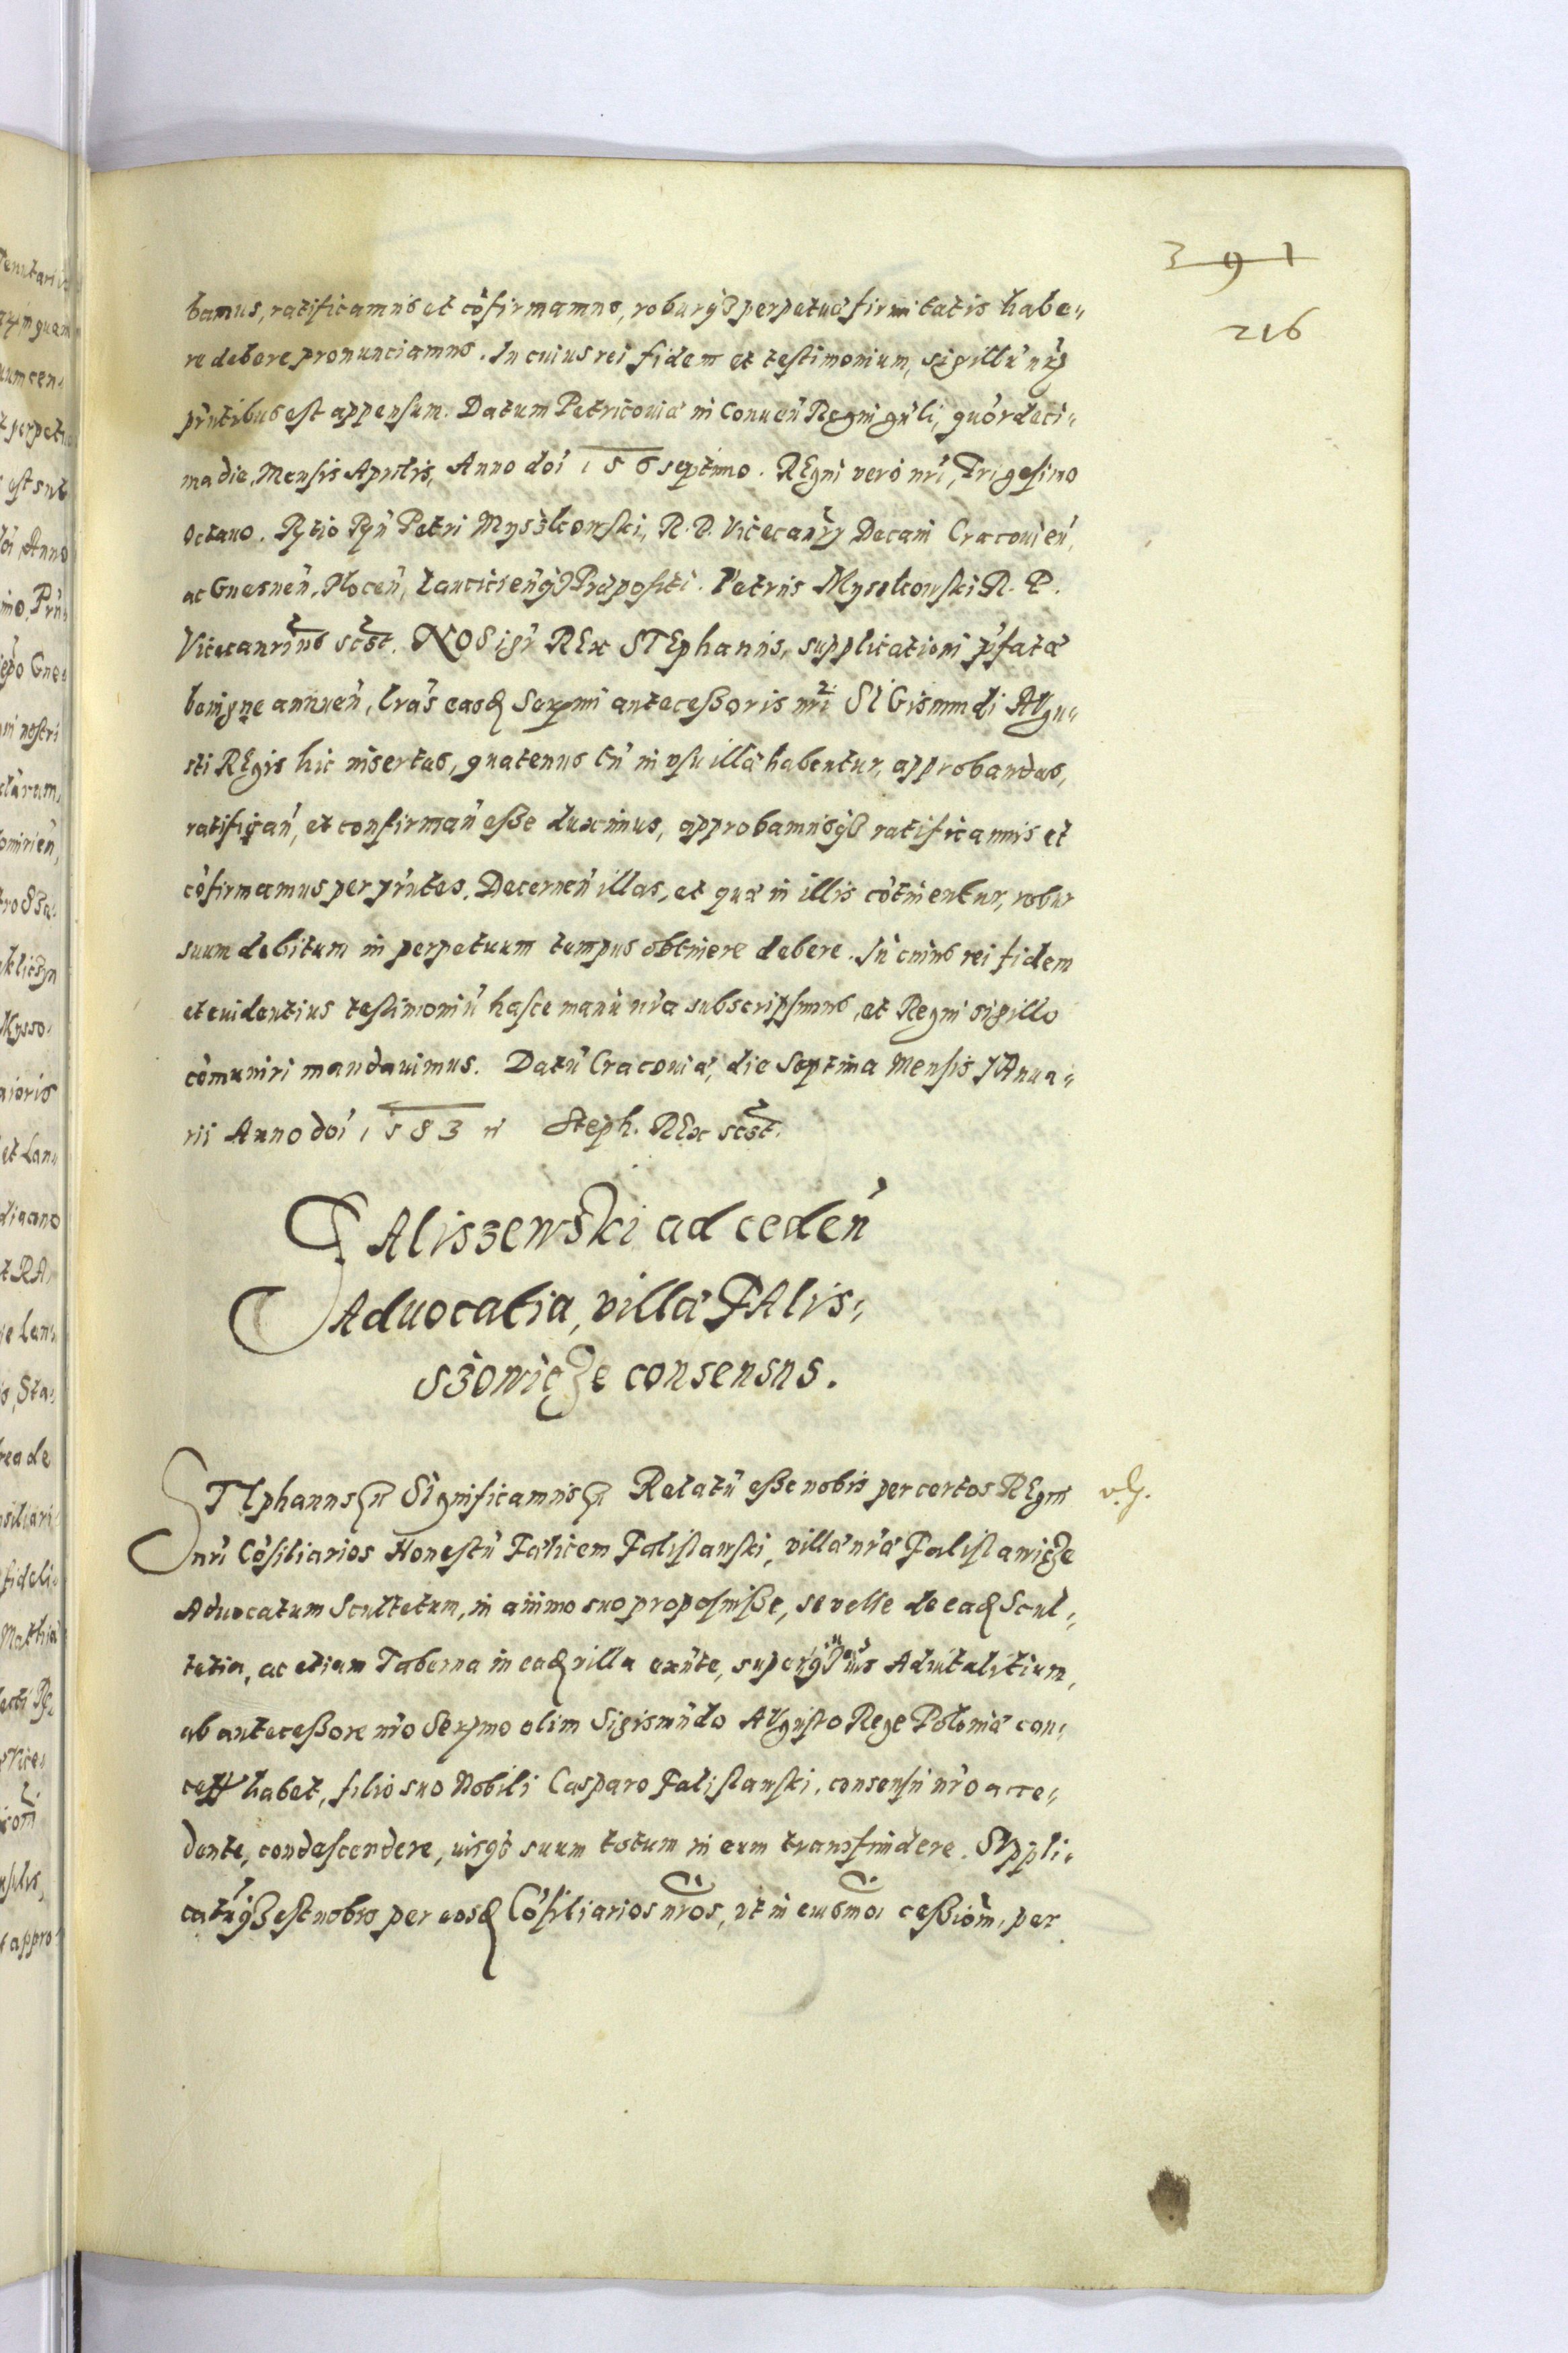 391
216
bamus, ratificamus et cõfirmamus, roburq3 perpetuæ firmitatis habe„
re debere pronunciamus. In cuius rei fidem et testimonium, sigillũ nr̃
pñtibus est appensum. Datum Petricouiæ in Conueñ Regni gñli, quārdeci„
ma die, Mensis Aprilis, Anno doi 156 septimo. REgni vero nr̃i, Trigesimo
Octauo. Petri Myszkowski, R. P. Vicecanr̃ Decani Cracouieñ,
ac Gnesneñ, Ploceñ, Lancicieñq3 Præpositi. Petrus Myszkowski R. P.
Vicecanr̃ius scst. NOS igr̃ REx STEphanus, supplicationi p̃fatæ
benigne annueñ, lr̃as easd Serⁿmi antecessoris nr̃i SIGismundi AUgu„
sti REgis hic insertas, quatenus tñ in vsu illa habentur, approbandas,
ratificañ, et confirmañ esse duximus, approbamusq3 ratificamus et
cõfirmamus per pñtes. Decerneñ illas, et quæ in illis cõtinentur, robur
suum debitum in perpetuum tempus obtinere debere. In cuius rei fidem
et euidentius testimoniũ hasce manu nr̃a subscripsimus, et Regni sigillo
cõmuniri mandauimus. Datũ Cracouiæ, die Septima Mensis JAnua„
rii Anno doi 1583 Steph. REx scst.
FAliszewski ad cedeñ
Aduocatia, villæ FAlis„
szowicze consensus.
STEphanus Significamus Relatũ esse nobis per certos REgni
nr̃i Cõsiliarios Honestũ Fælicem Falissewski, villæ nr̃æ Falissawicze
Aduocatum Scultetum, in animo suo proposuisse, se velle de ead Scul„
tetia, ac etiam Taberna in ead villa exñte, Aduitalitium,
ab antecessore nr̃o Serⁿmo olim Sigismũdo AUgusto Rege Poloniæ con„
cess habet, filio suo Nobili Casparo Falissewski, consensu nr̃o acce„
dente, condescendere, iusq3 suum totum in eum transfundere. SUppli„
catũq3 est nobis per eosd Cõsiliarios nr̃os, vt in eiusmoi cessiõm, per